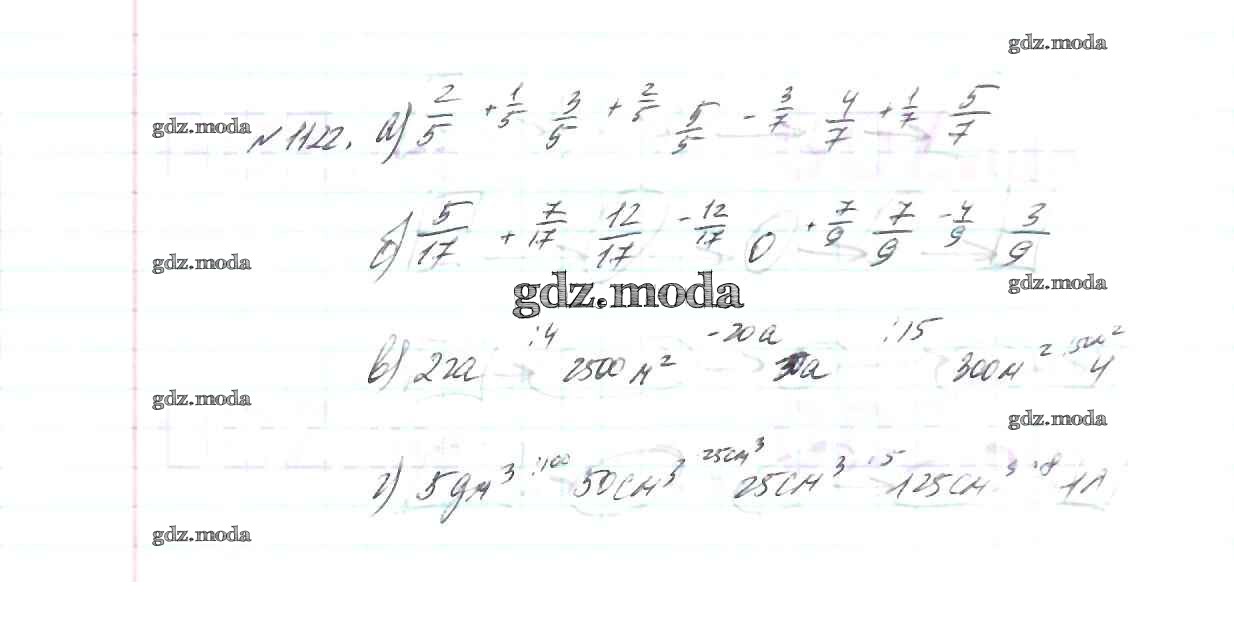 gdz.moda
gdz.moda № 1122. а) 2/5 +1/5 3/5 +2/5 5/5 -3/7 4/7 +1/7 5/7
б) 5/17 +7/17 12/17 -12/17 0 +7/9 7/9 -4/9 3/9
gdz.moda
gdz.moda
gdz.moda
в) 2га :4 2500 м² -20а а :15 300м² 4
gdz.moda
gdz.moda
г) 5дм³ :100 50см³ 25см³ 25см³ 5 125см³ 8 1л
gdz.moda